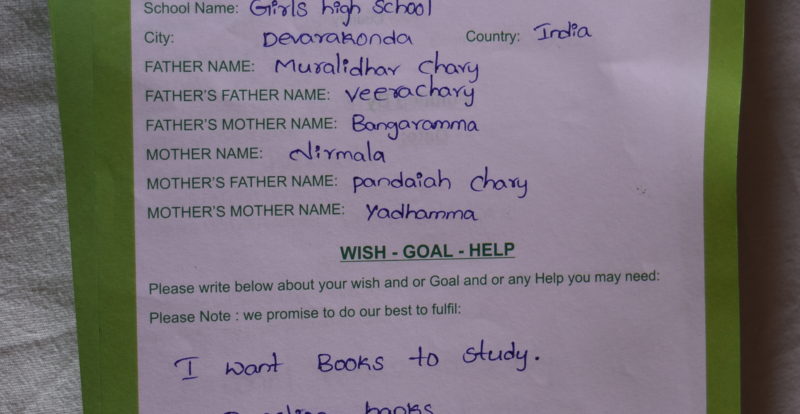 School Name: Girls high School
City: Devarakonda Country: India
FATHER NAME: Muralidhar Chary
FATHER'S FATHER NAME: Veerachary
FATHER'S MOTHER NAME: Bangaramma
MOTHER NAME: Nirmala
MOTHER'S FATHER NAME: pandaiah Chary
MOTHER'S MOTHER NAME: Yadhamma
WISH - GOAL - HELP
Please write below about your wish and or Goal and or any Help you may need:
Please Note : we promise to do our best to fulfil:
I want Books to study.
books